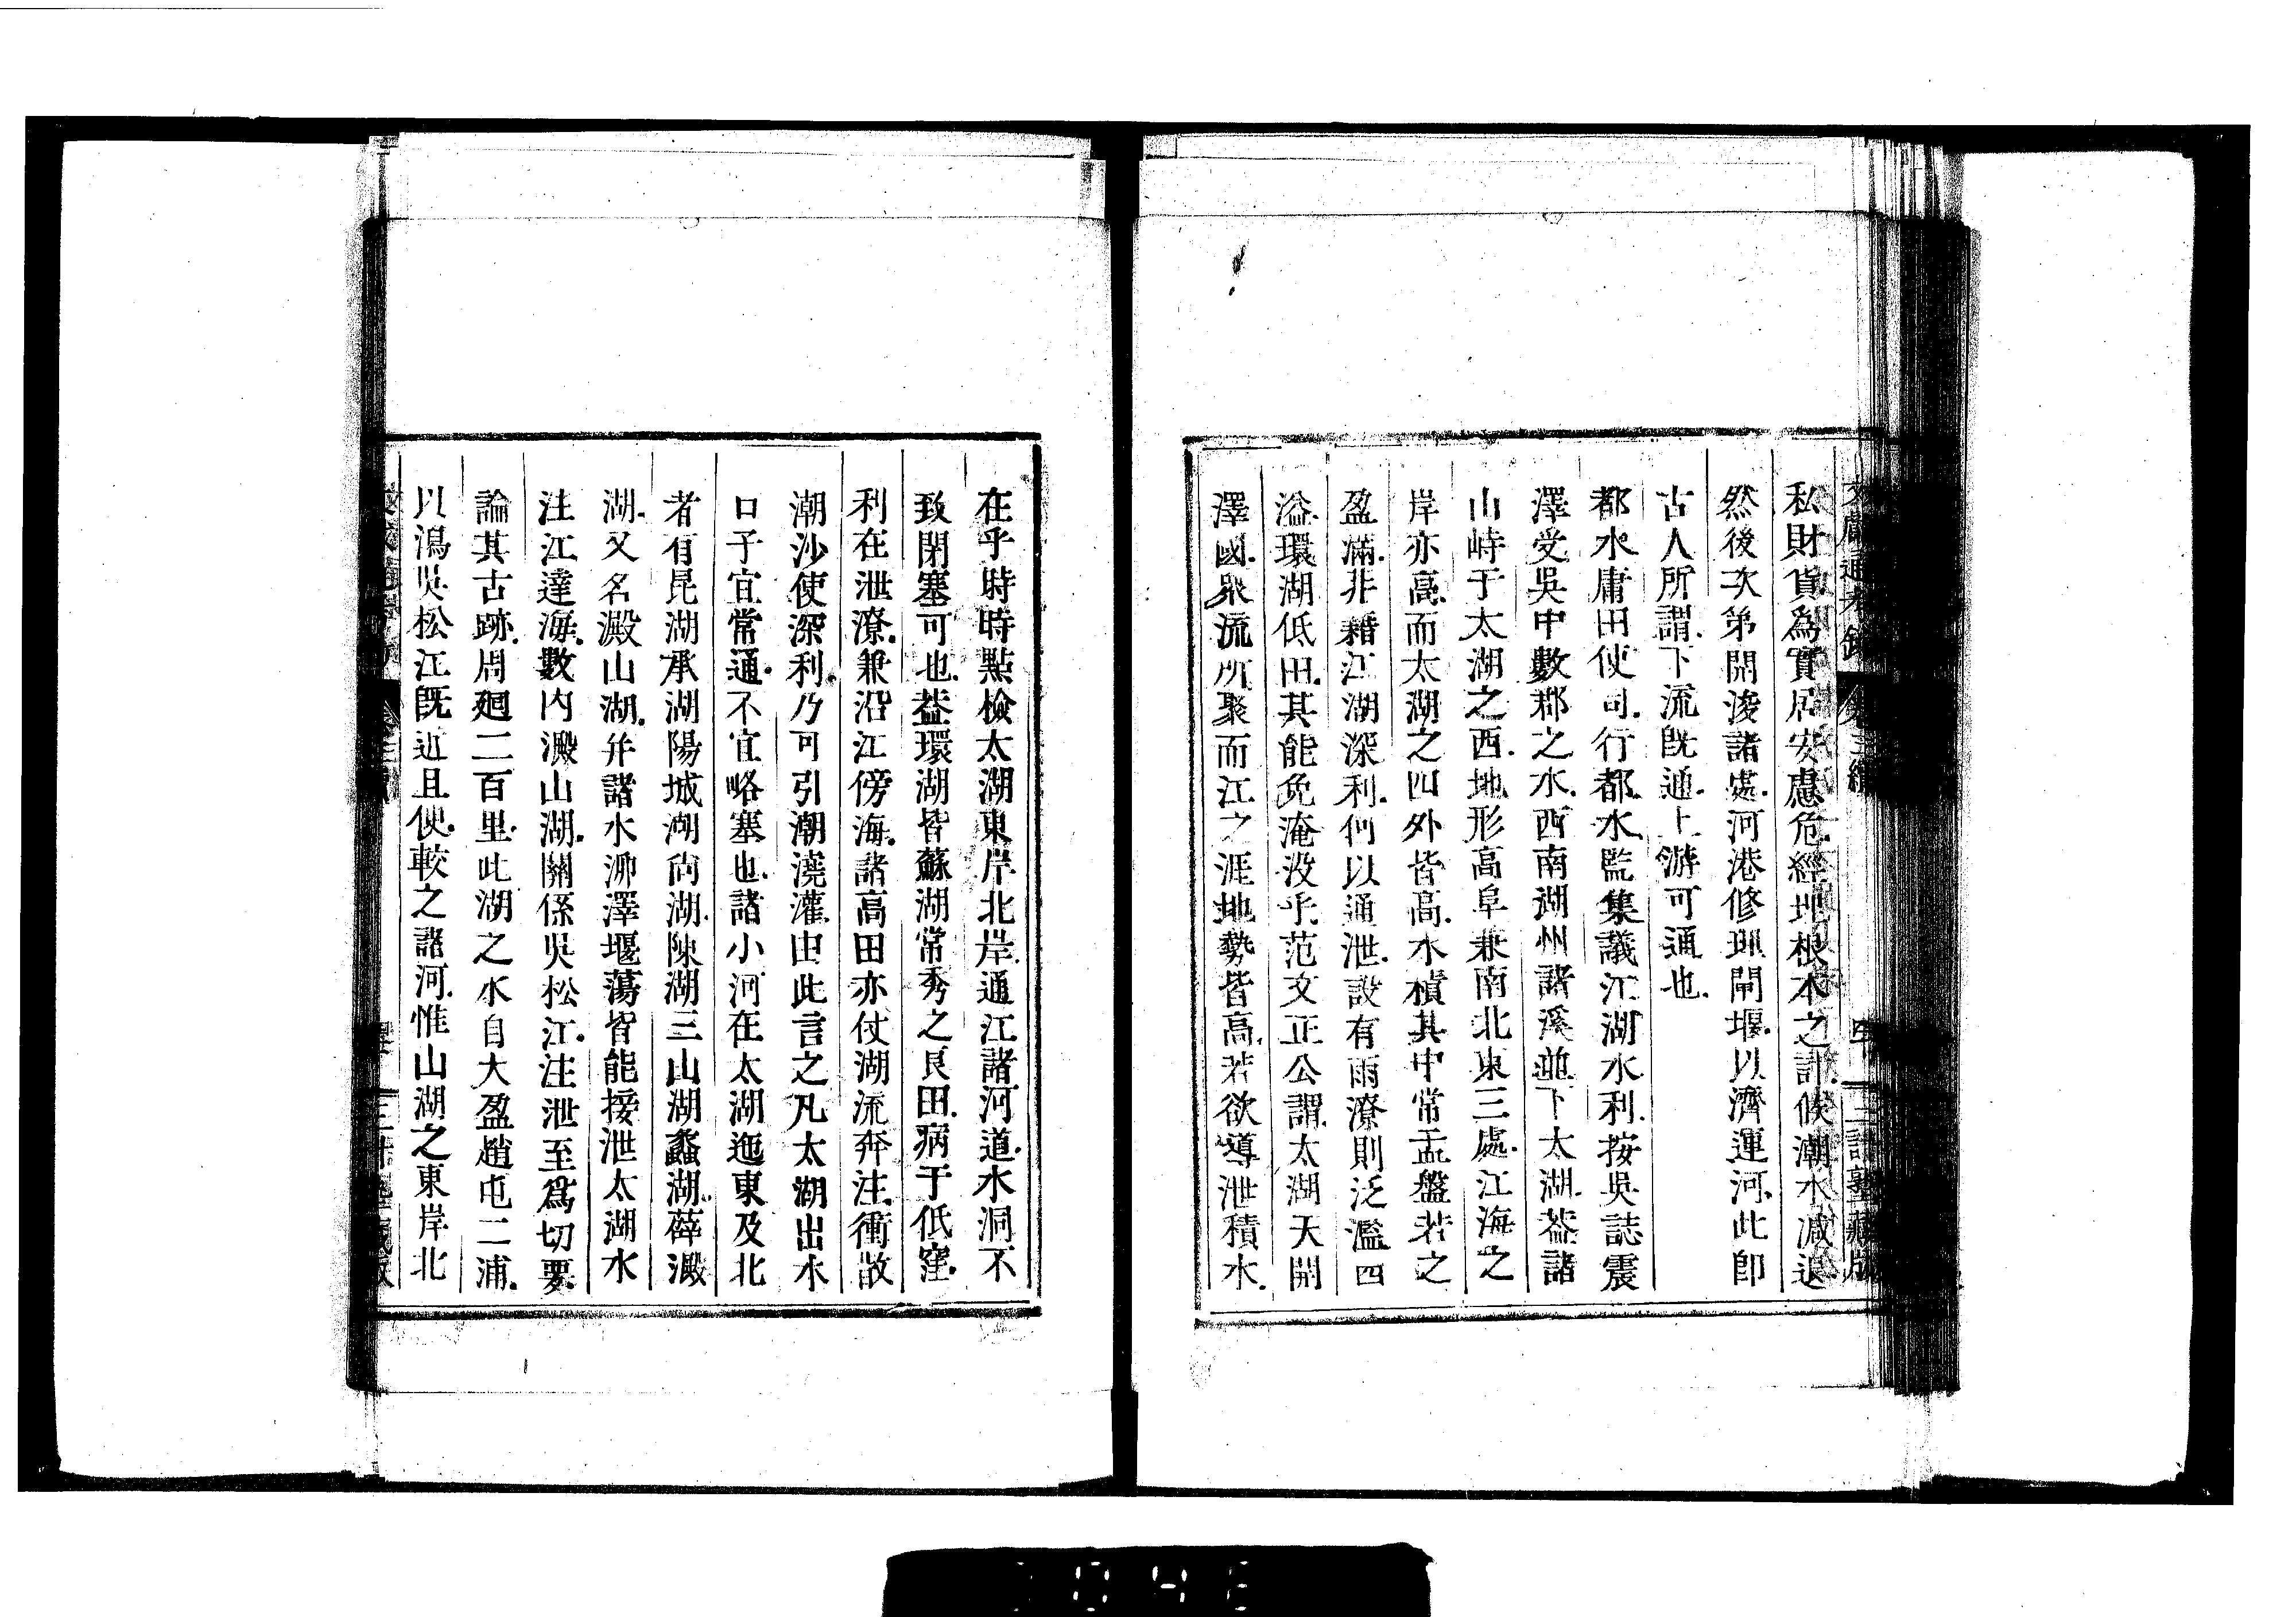 私財貨為實居安慮危經理根本之計候潮水減退
然後次第開浚諸處河港修理閘堰以濟運河此即
古人所謂下流旣通上游可通也
都水庸田使司行都水監集議江湖水利按吳誌震
澤受吳中數郡之水西南湖州諸溪並下太湖葢諸
山峙于太湖之西地形高阜兼南北東三處江海之
岸亦高而太湖之四外皆高水積其中常盂盤若之
盈滿非藉江湖深利何以通泄設有雨潦則泛濫四
溢環湖低田其能免淹没乎范文正公謂太湖天開
澤國眾流所聚而江之涯地勢皆高若欲導泄積水
在乎時時點檢太湖東岸北岸通江諸河道水洞不
致閉塞可也葢環湖皆蘇湖常秀之良田病于低窪
利在泄潦兼沿江傍海諸高田亦仗湖流奔注衝故
潮沙使深利乃可引潮澆灌由此言之凡太湖出水
口子宜常通不宜略塞也諸小河在太湖迤東及北
者有昆湖承湖陽城湖尚湖陳湖三山湖蠡湖薛澱
湖又名澱山湖并諸水泖澤堰蕩皆能接泄太湖水
注江達海數内澱山湖關係吳松江注泄至為切要
論其古跡周廻二百里此湖之水自大盈趙屯二浦
以瀉吳松江旣近且便較之諸河惟山湖之東岸北